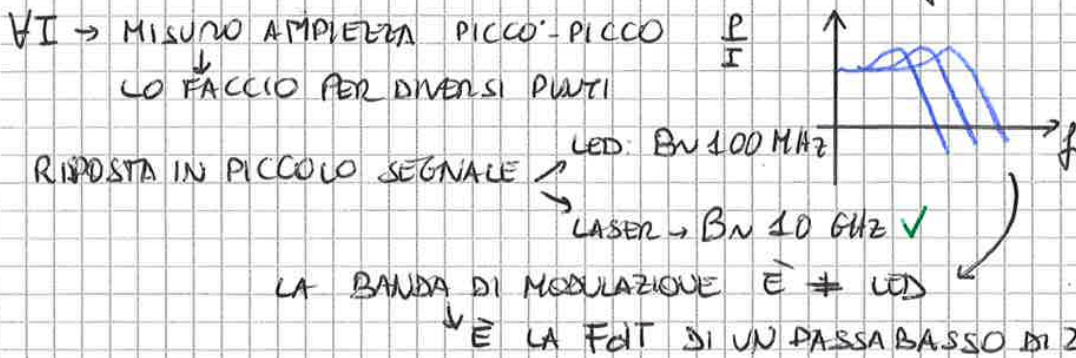 ∀I → MISURO AMPIEZZA PICCO-PICCO P/I
↓
LO FACCIO PER DIVERSI PUNTI
LED: B~100 MHz
f
RISPOSTA IN PICCOLO SEGNALE
LASER → B~10 GHz ✓
LA BANDA DI MODULAZIONE È ≠ LED
↓ È LA FdT DI UN PASSABASSO DI 2